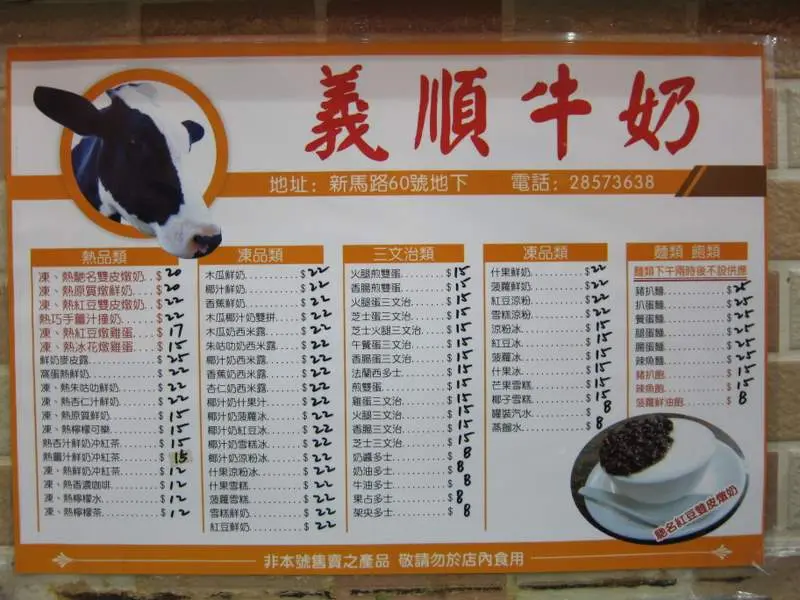 義順牛奶
地址：新馬路60號地下 電話：28573638
熱品類
凍、熱馳名雙皮燉奶..$ 20
凍、熱原質燉鮮奶...$ 20
凍、熱紅豆雙皮燉奶..$ 22
熱巧手薑汁撞奶.....$ 22
凍、熱紅豆燉雞蛋...$ 17
凍、熱冰花燉雞蛋....$ 15
鮮奶麥皮露.........$ 25
窩蛋熱鮮奶.........$ 22
凍、熱朱咕叻鮮奶....$ 22
凍、熱杏仁汁鮮奶....$ 22
凍、熱原質鮮奶.....$ 15
凍、熱檸檬可樂.....$ 15
熱杏汁鮮奶冲紅茶....$ 15
熱薑汁鮮奶冲紅茶....$ 15
凍、熱鮮奶冲紅茶....$ 12
凍、熱香濃咖啡.....$ 12
凍、熱檸檬水.......$ 12
凍、熱檸檬茶.......$ 12
凍品類
木瓜鮮奶..........$ 22
椰汁鮮奶..........$ 22
香蕉鮮奶..........$ 22
木瓜椰汁奶雙拼.....$ 22
木瓜奶西米露.......$ 22
朱咕叻奶西米露.....$ 22
椰汁奶西米露.......$ 22
香蕉奶西米露.......$ 22
杏仁奶西米露.......$ 22
椰汁奶什果汁.......$ 22
椰汁奶菠蘿冰.......$ 22
椰汁奶紅豆冰.......$ 22
椰汁奶涼粉冰.......$ 22
什果涼粉冰.........$ 22
什果雪糕..........$ 22
菠蘿雪糕..........$ 22
雪糕鮮奶..........$ 22
紅豆鮮奶..........$ 22
三文治類
火腿煎雙蛋........$ 15
香腸煎雙蛋........$ 15
火腿蛋三文治.......$ 15
芝士蛋三文治.......$ 15
芝士火腿三文治.....$ 15
午餐蛋三文治.......$ 15
香腸蛋三文治.......$ 15
法蘭西多士........$ 15
煎雙蛋...........$ 15
雞蛋三文治........$ 15
火腿三文治........$ 15
香腸三文治........$ 15
芝士三文治........$ 15
奶醬多士..........$ 8
奶油多士..........$ 8
牛油多士..........$ 8
果占多士..........$ 8
架央多士..........$ 8
凍品類
什果鮮奶..........$ 22
菠蘿鮮奶..........$ 22
紅豆涼粉..........$ 22
雪糕涼粉..........$ 22
涼粉冰...........$ 15
紅豆冰...........$ 15
菠蘿冰...........$ 15
什果冰...........$ 15
芒果雪糕..........$ 15
椰子雪糕..........$ 15
罐裝汽水..........$ 8
蒸餾水...........$ 8
麵類 飽類
麵類下午兩時後不設供應
豬扒麵...........$ 25
扒蛋麵...........$ 25
餐蛋麵...........$ 25
腿蛋麵...........$ 25
腸蛋麵...........$ 25
辣魚麵...........$ 25
豬扒飽...........$ 15
辣魚飽...........$ 15
菠蘿鮮油飽........$ 8
馳名紅豆雙皮燉奶
非本號售賣之產品 敬請勿於店內食用